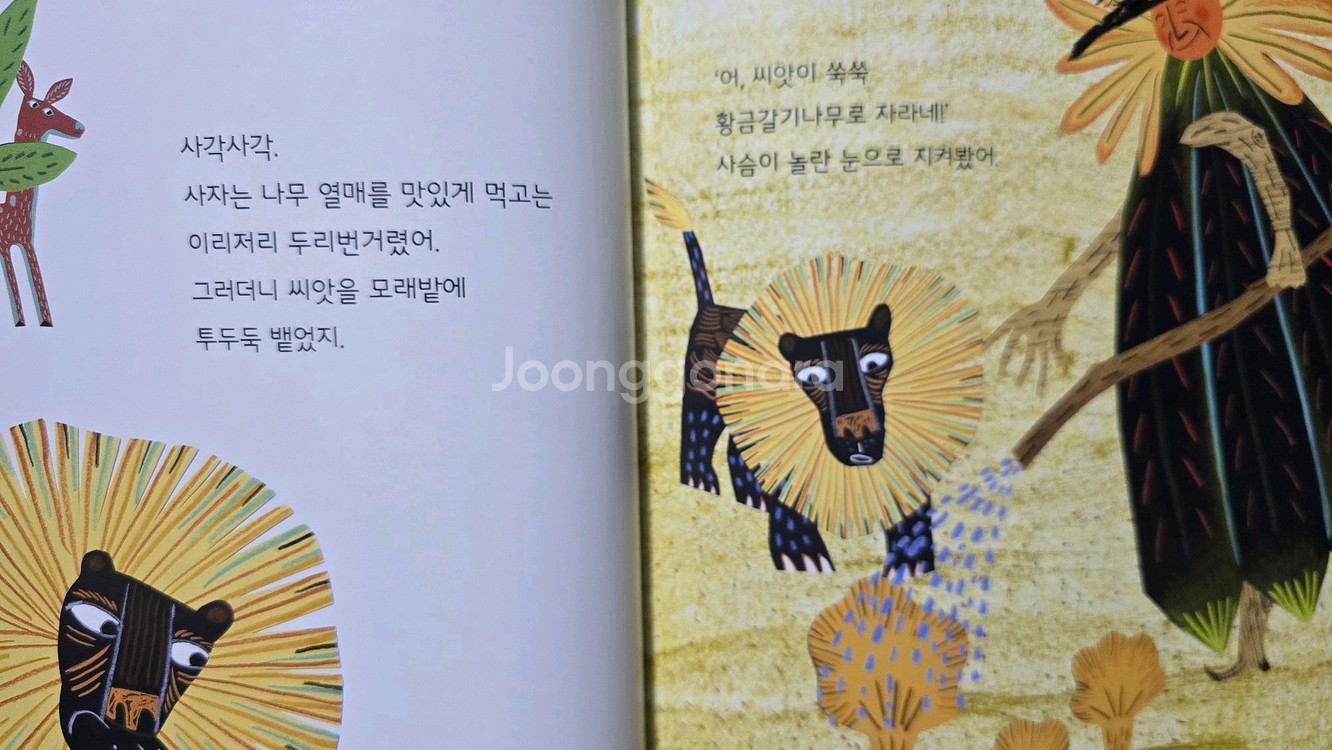 사각사각.
사자는 나무 열매를 맛있게 먹고는
이리저리 두리번거렸어.
그러더니 씨앗을 모래밭에
투두둑 뱉었지.
'어, 씨앗이 쑥쑥
황금갈기나무로 자라네!'
사슴이 놀란 눈으로 지켜봤어.
Joonggonara